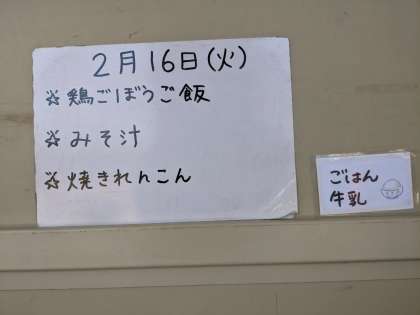 2月16日(火)
☆鶏ごぼうご飯
☆みそ汁
☆焼きれんこん
ごはん
牛乳